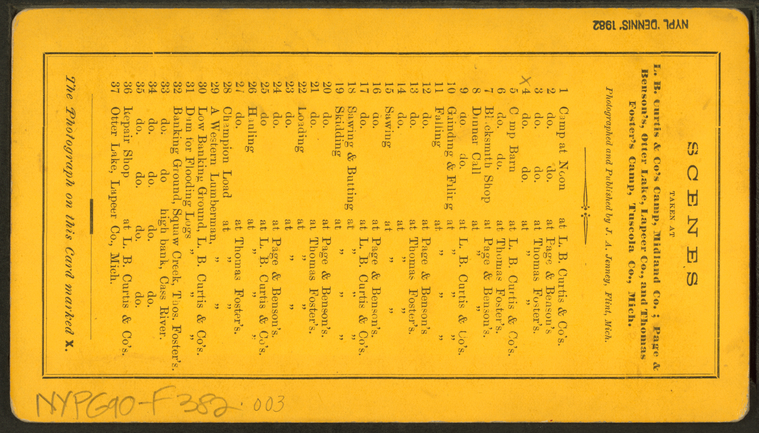 NYPL 'DENNIS' 1982
SCENES
TAKEN AT
L. B. Curtis & Co's Camp, Midland Co.; Page &
Benson's, Otter Lake, Lapeer Co., and Thomas
Foster's Camp, Tuscola Co., Mich.
Photographed and Published by J. A. Jenney, Flint, Mich.
1 Camp at Noon at L. B. Curtis & Co's.
2 do. do. at Page & Benson's
3 do. do. at Thomas Foster's.
X 4 do. do. at " "
5 Camp Barn at L. B. Curtis & Co's.
6 do. do. at Thomas Foster's.
7 Blacksmith Shop at Page & Benson's.
8 Dinner Call at " "
9 do. do. at L. B. Curtis & Co's.
10 Grinding & Filing at " "
11 Falling at " "
12 do. at Page & Benson's.
13 do. at Thomas Foster's.
14 do. at " "
15 Sawing at " "
16 do. at Page & Benson's.
17 do. at L. B. Curtis & Co's.
18 Sawing & Butting at " "
19 Skidding at " "
20 do. at Page & Benson's.
21 do. at Thomas Foster's.
22 Loading at " "
23 do. at " "
24 do. at Page & Benson's.
25 do. at L. B. Curtis & Co's.
26 Hauling at " "
27 do. at Thomas Foster's.
28 Champion Load at " "
29 A Western Lumberman, " "
30 Low Banking Ground, L. B. Curtis & Co's.
31 Dam for Flooding Logs " " "
32 Banking Ground, Squaw Creek, Thos. Foster's.
33 do. do high bank, Cass River.
34 do. do. do. do.
35 do. do. do. do.
36 Repair Shop at L. B. Curtis & Co's.
37 Otter Lake, Lapeer Co., Mich.
The Photograph on this Card marked x.
NYPG90-F382. 003